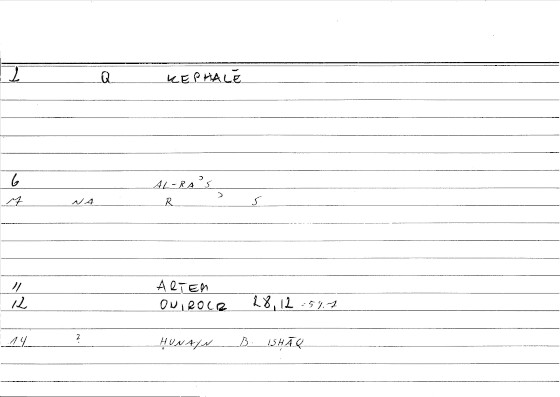 1 Q KEPHALĒ
6 AL-RAʾS
17 NA R ʾ S
11 ARTEM
12 OVIROCR 28,12
14 ? ḤUNAIN B. ISḤĀQ